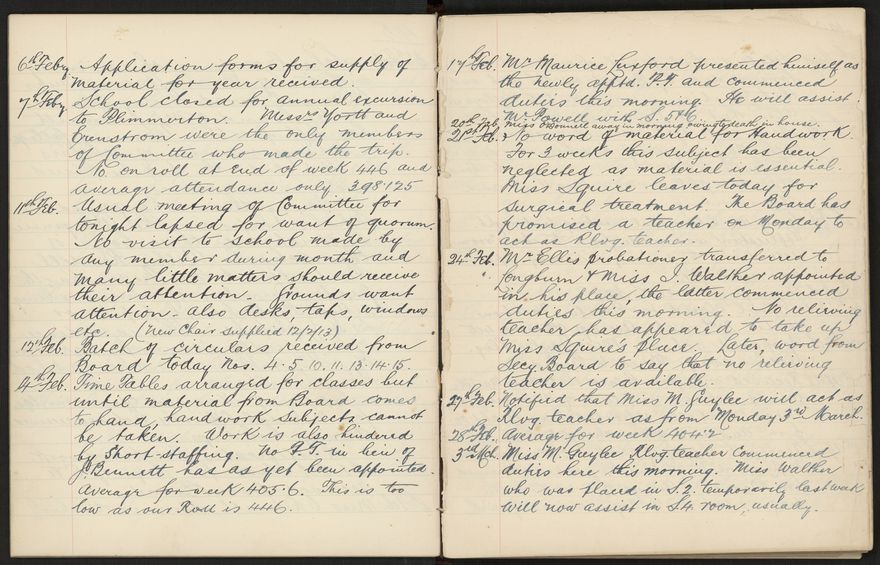 6th Feby Application forms for supply of
material for year received.
7th Feby School closed for annual excursion
to Plimmerton. Messrs Yortt and
Erenstrom were the only members
of Committee who made the trip.
No on roll at end of week 446 and
average attendance only 398.125
11th Feb. Usual meeting of Committee for
tonight lapsed for want of quorum.
No visit to School made by
any member during month and
many little matters should receive
their attention. Grounds want
attention - also desks, taps, windows
etc. (New Chair supplied 12/2/13)
12th Feb. Batch of circulars received from
Board today Nos. 4. 5. 10. 11. 13. 14. 15.
14th Feb. Time Tables arranged for classes but
until material from Board comes
to hand, handwork subjects cannot
be taken. Work is also hindered
by short staffing. No P.T. in lieu of
J. Bennett has as yet been appointed.
Average for week 405.6. This is too
low as our Roll is 446.
17th Feb. Mr Maurice Luxford presented himself as
the newly apptd. P.T. and commenced
duties this morning. He will assist
Mr Powell with S. 5 & 6.
20th Feb. Miss O'Donnell away in morning owing to death in house.
21st Feb. No word of material for Handwork.
For 3 weeks this subject has been
neglected as material is essential.
Miss Squire leaves today for
surgical treatment. The Board has
promised a teacher on Monday to
act as Rlvg. teacher.
24th Feb. Mr Ellis probationer transferred to
Longburn & Miss J. Walther appointed
in his place, the latter commenced
duties this morning. No relieving
teacher has appeared to take up
Miss Squire's place. Later, word from
Secy Board to say that no relieving
teacher is available.
27th Feb. Notified that Miss M. Guylee will act as
Rlvg teacher as from Monday 3rd March.
28th Feb. Average for week 404.2
3rd Mch. Miss M. Guylee Rlvg. teacher commenced
duties here this morning. Miss Walker
who was placed in S.2. temporarily last week
will now assist in S.4. room, usually.